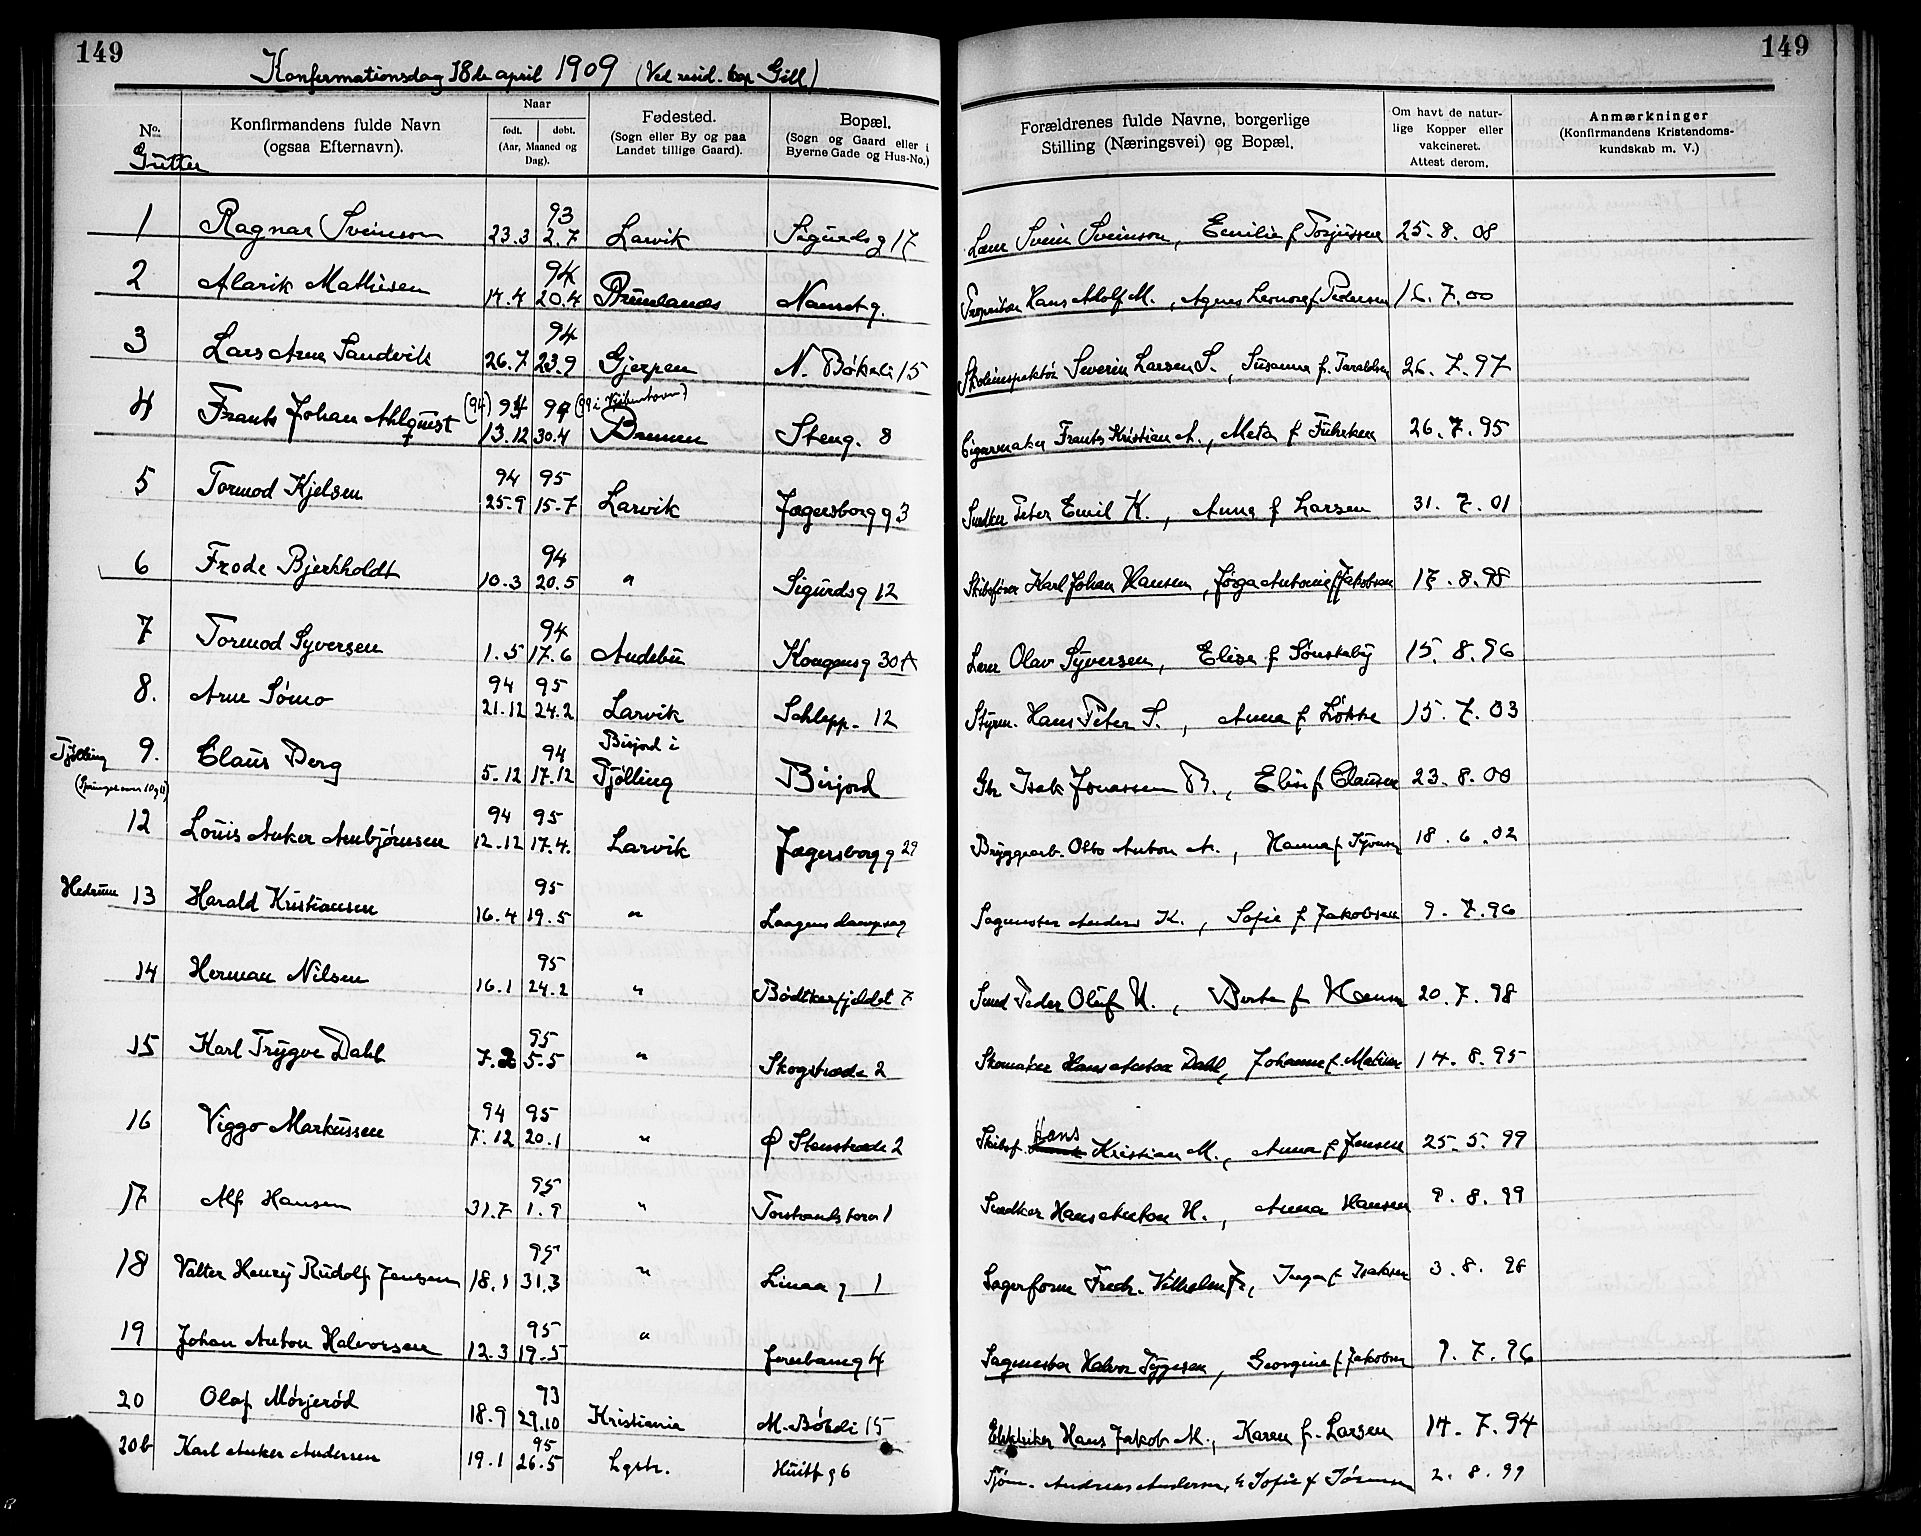 149
149
Konfirmationsdag 18de april 1909 (Ved resid. kap. Gill)
No.
Konfirmandens fulde Navn
(ogsaa Efternavn).
Naar
født. døbt.
(Aar, Maaned og
Dag).
Fødested.
(Sogn eller By og paa
Landet tillige Gaard).
Bopæl.
(Sogn og Gaard eller i
Byerne Gade og Hus-No.)
Forældrenes fulde Navne, borgerlige
Stilling (Næringsvei) og Bopæl.
Om havt de natur-
lige Kopper eller
vakcineret.
Attest derom.
Anmærkninger
(Konfirmandens Kristendoms-
kundskab m. V.)
Gutter
93
1 Ragnar Sveinson 23.3 2.7 Larvik Sigurdsg 17 Lærer Svein Sveinson, Emilie f Torjussen 25.8.08
94
2 Alarik Mathisen 14.4 20.4 Brunlanes Nansetg. Proprietær Hans Adolf M., Agnes Leonore f Pedersen 16.7.00
94
3 Lars Arne Sandvik 26.7 23.9 Gjerpen N. Bøkeli 15 Skoleinspektør Severin Larsen S., Susanne f. Taraldsen 26.7.97
(94)
4 Frants Johan Ahlquist 13.12 30.4 Bremen Steng. 8 Cigarmaker Frants Kristian A., Meta f Fuhrken 26.7.95
94 95
5 Tormod Kjelsen 25.9 15.7 Larvik Jægersborgg 3 Snedker Peter Emil K., Anna f Larsen 31.7.01
94
6 Frode Bjerkholdt 10.3 20.5 " Sigurdsg 12 Skibsfører Karl Johan Hansen, Antonie f Jakobsen 17.8.98
94
7 Tormod Syversen 1.5 17.6 Andebu Kongensg 30A Lærer Olav Syversen, Elise f Sønsteby 15.8.96
94 95
8. Arne Sømo 21.12 24.2 Larvik Schlepp. 12 Styrm. Hans Peter S., Anna f Løkke 15.7.03
94 Birjord i
Tjølling 9. Claus Berg 5.12 17.12 Tjølling Birjord Gbr Isak Jonassen B., Elise f Clausen 23.8.00
(Springes over 10 og 11)
94 95
12 Louis Anker Anbjørnsen 12.12 17.4. Larvik Jægersborgg 29 Bryggearb. Otto Anton A., Hanna f Syversen 18.6.02
95
Hedrum 13 Harald Kristiansen 16.4 19.5 " Laagens dampsag Sagmester Anders K., Sofie f Jakobsen 9.7.96
95
14 Herman Nilsen 16.1 24.2 " Bødtkerfjeldet 7 Smed Peder Oluf N., Berte f Hansen 20.7.98
95
15 Karl Trygve Dahl 7.2 5.5 " Skogstræde 2 Skomaker Hans Anton Dahl, Johanne f. Matisen 14.8.95
94 95
16 Viggo Markussen 7.12 20.1 " Ø Stenstræde 2 Skibsf. Hans Kristian M., Anna f Jensen 25.5.99
95
17 Alf Hansen 31.7 1.9 " Torstrands torv 1 Snedker Hans Anton H., Anna Hansen 9.8.99
95
18 Valter Henry Rudolf Jensen 18.1 31.3 " Linaa g 1 Lagerform Fredr. Vilhelm J., Inga f Isaksen 3.8.98
95
19 Johan Anton Halvorsen 12.3 19.5 " Jernbaneg 4 Sagmester Halvor Tygesen, Georgine f Jakobsen 9.7.96
93
20 Olaf Mørjerød 18.9 29.10 Kristiania M. Bøkeli 15 Elektriker Hans Jakob M., Karen f. Larsen 14.7.94
95
20b Karl Anker Andersen 19.1 26.5 Lgstr. Huitfg 6 Sjøm. Andreas Andersen, & Sofie f 2.8.99